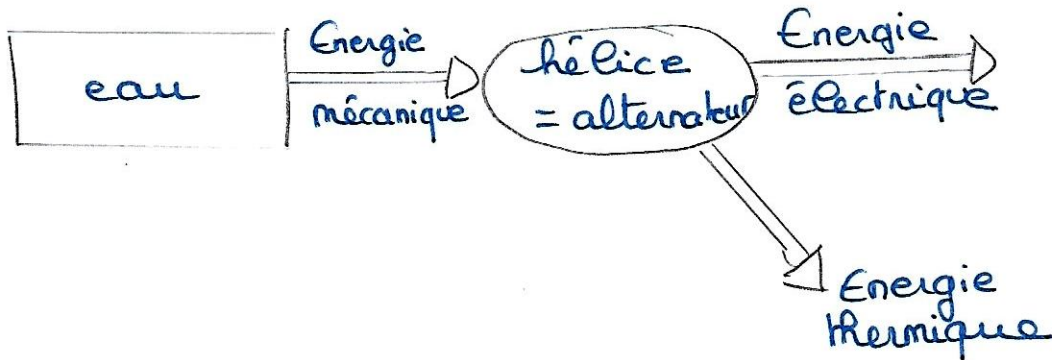 eau
Energie
mécanique
hélice
= alternateur
Energie
électrique
Energie
thermique